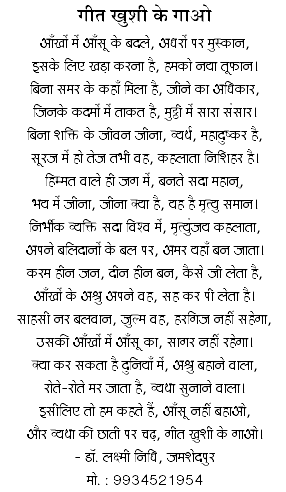 गीत खुशी के गाओ
आँखों में आँसू के बदले, अधरों पर मुस्कान,
इसके लिए खड़ा करना है, हमको नया तूफान।
बिना समर के कहाँ मिला है, जीने का अधिकार,
जिनके कदमों में ताकत है, मुट्ठी में सारा संसार।
बिना शक्ति के जीवन जीना, व्यर्थ, महादुष्कर है,
सूरज में हो तेज तभी वह, कहलाता निशिहर है।
हिम्मत वाले ही जग में, बनते सदा महान,
भय में जीना, जीना क्या है, वह है मृत्यु समान।
निर्भीक व्यक्ति सदा विश्व में, मृत्युंजय कहलाता,
अपने बलिदानों के बल पर, अमर यहाँ बन जाता।
करम हीन जन, दीन हीन बन, कैसे जी लेता है,
आँखों के अश्रु अपने वह, सह कर पी लेता है।
साहसी नर बलवान, जुल्म वह, हरगिज नहीं सहेगा,
उसकी आँखों में आँसू का, सागर नहीं रहेगा।
क्या कर सकता है दुनियाँ में, अश्रु बहाने वाला,
रोते-रोते मर जाता है, व्यथा सुनाने वाला।
इसीलिए तो हम कहते हैं, आँसू नहीं बहाओ,
और व्यथा की छाती पर चढ़, गीत खुशी के गाओ।
- डॉ. लक्ष्मी निधि, जमशेदपुर
मो. : 9934521954